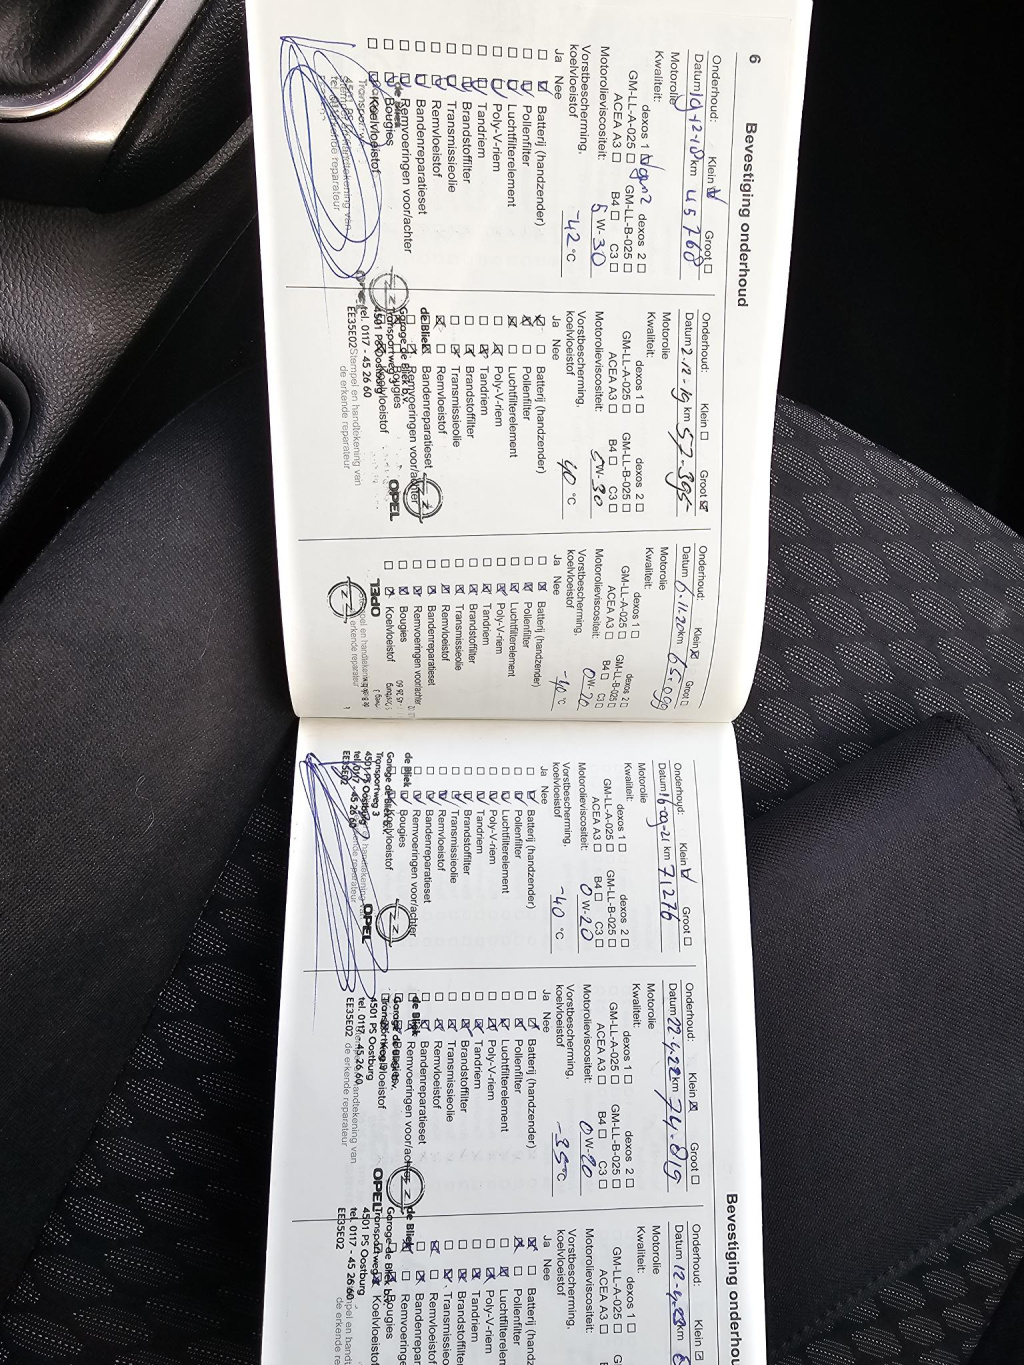 6
Bevestiging onderhoud
Onderhoud: Klein Groot
Datum 12-18 km 45768
Motorolie
Kwaliteit: dexos 1 dexos 2
GM-LL-A-025 GM-LL-B-025
ACEA A3 B4 C3
Motorolieviscositeit: 5 W-30
Vorstbescherming,
koelvloeistof -42 °C
Ja Nee
Batterij (handzender)
Pollenfilter
Luchtfilterelement
Poly-V-riem
Tandriem
Brandstoffilter
Transmissieolie
Remvloeistof
Bandenreparatieset
Remvoeringen voor/achter
Bougies
Koelvloeistof
de erkende reparateur
Onderhoud: Klein Groot
Datum 2-12-19 km 57-395
Motorolie
Kwaliteit: dexos 1 dexos 2
GM-LL-A-025 GM-LL-B-025
ACEA A3 B4 C3
Motorolieviscositeit: W-30
Vorstbescherming,
koelvloeistof 40 °C
Ja Nee
Batterij (handzender)
Pollenfilter
Luchtfilterelement
Poly-V-riem
Tandriem
Brandstoffilter
Transmissieolie
Remvloeistof
Bandenreparatieset
Remvoeringen voor/achter
Bougies
Koelvloeistof
Stempel en handtekening van
de erkende reparateur
de Bliek
Garage de Bliek b.v.
Transportweg 3
4501 PS Oostburg
tel. 0117 - 45 26 60
EE35E02
OPEL
Onderhoud: Klein Groot
Datum 6-11-20 km 65-099
Motorolie
Kwaliteit: dexos 1 dexos 2
GM-LL-A-025 GM-LL-B-025
ACEA A3 B4 C3
Motorolieviscositeit: 0 W-20
Vorstbescherming,
koelvloeistof -40 °C
Ja Nee
Batterij (handzender)
Pollenfilter
Luchtfilterelement
Poly-V-riem
Tandriem
Brandstoffilter
Transmissieolie
Remvloeistof
Bandenreparatieset
Remvoeringen voor/achter
Bougies
Koelvloeistof
OPEL
erkende reparateur
Onderhoud: Klein Groot
Datum 16-09-21 km 71276
Motorolie
Kwaliteit: dexos 1 dexos 2
GM-LL-A-025 GM-LL-B-025
ACEA A3 B4 C3
Motorolieviscositeit: 0 W-20
Vorstbescherming,
koelvloeistof -40 °C
Ja Nee
Batterij (handzender)
Pollenfilter
Luchtfilterelement
Poly-V-riem
Tandriem
Brandstoffilter
Transmissieolie
Remvloeistof
Bandenreparatieset
Remvoeringen voor/achter
Bougies
Koelvloeistof
de Bliek
Garage de Bliek b.v.
Transportweg 3
4501 PS Oostburg
tel. 0117 - 45 26 60
EE35E02
OPEL
Onderhoud: Klein Groot
Datum 22-4-22 km 74-819
Motorolie
Kwaliteit: dexos 1 dexos 2
GM-LL-A-025 GM-LL-B-025
ACEA A3 B4 C3
Motorolieviscositeit: 0 W-20
Vorstbescherming,
koelvloeistof -35 °C
Ja Nee
Batterij (handzender)
Pollenfilter
Luchtfilterelement
Poly-V-riem
Tandriem
Brandstoffilter
Transmissieolie
Remvloeistof
Bandenreparatieset
Remvoeringen voor/achter
Bougies
Koelvloeistof
handtekening van
de erkende reparateur
de Bliek
Garage de Bliek b.v.
Transportweg 3
4501 PS Oostburg
tel. 0117 - 45 26 60
EE35E02
OPEL
Bevestiging onderhou
Onderhoud: Klein
Datum 12- km
Motorolie
Kwaliteit: dexos 1
GM-LL-A-025 GM
ACEA A3
Motorolieviscositeit:
Vorstbescherming,
koelvloeistof
Ja Nee
Batterij (handzende
Pollenfilter
Luchtfilterelem
Poly-V-riem
Tandriem
Brandstoffilter
Transmissieolie
Remvloeistof
Bandenreparati
Remvoeringen
Bougies
Koelvloeistof
de Bliek
Garage de Bliek b.v.
Transportweg 3
4501 PS Oostburg
tel. 0117 - 45 26 60
EE35E02